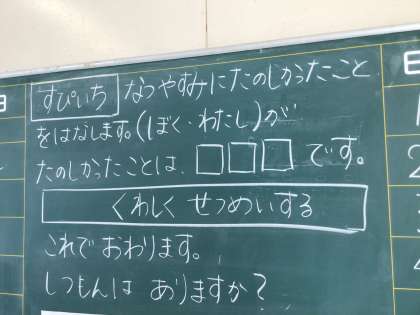 すぴいち なつやすみにたのしかったこと
をはなします。(ぼく・わたし)が
たのしかったことは、□□□です。
くわしく せつめいする
これで おわります。
しつもんは ありますか?
日
1
2
3
4